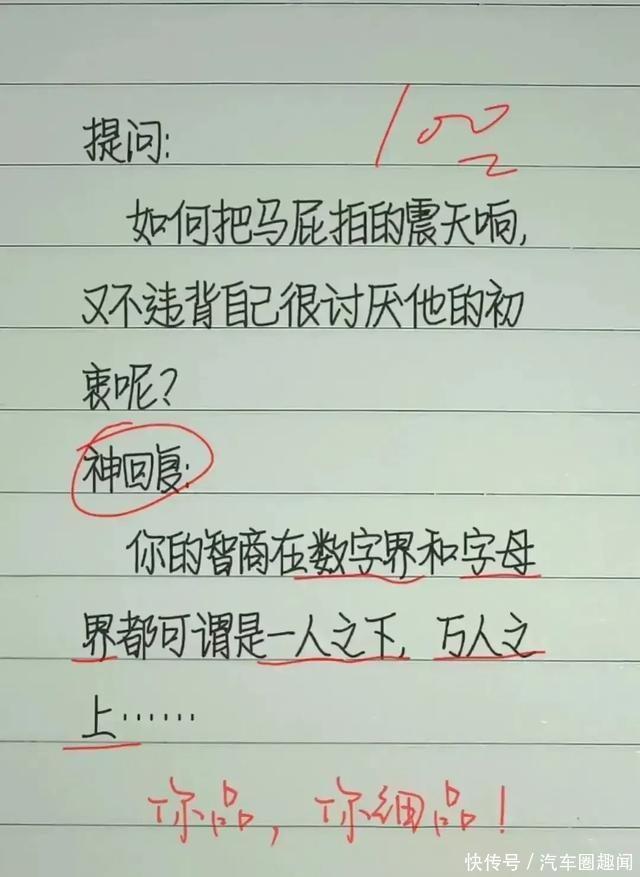 100
提问:
如何把马屁拍的震天响,
又不违背自己很讨厌他的初
衷呢?
神回复:
你的智商在数字界和字母
界都可谓是一人之下,万人之
上……
你品，你细品！
快传号／汽车圈趣闻